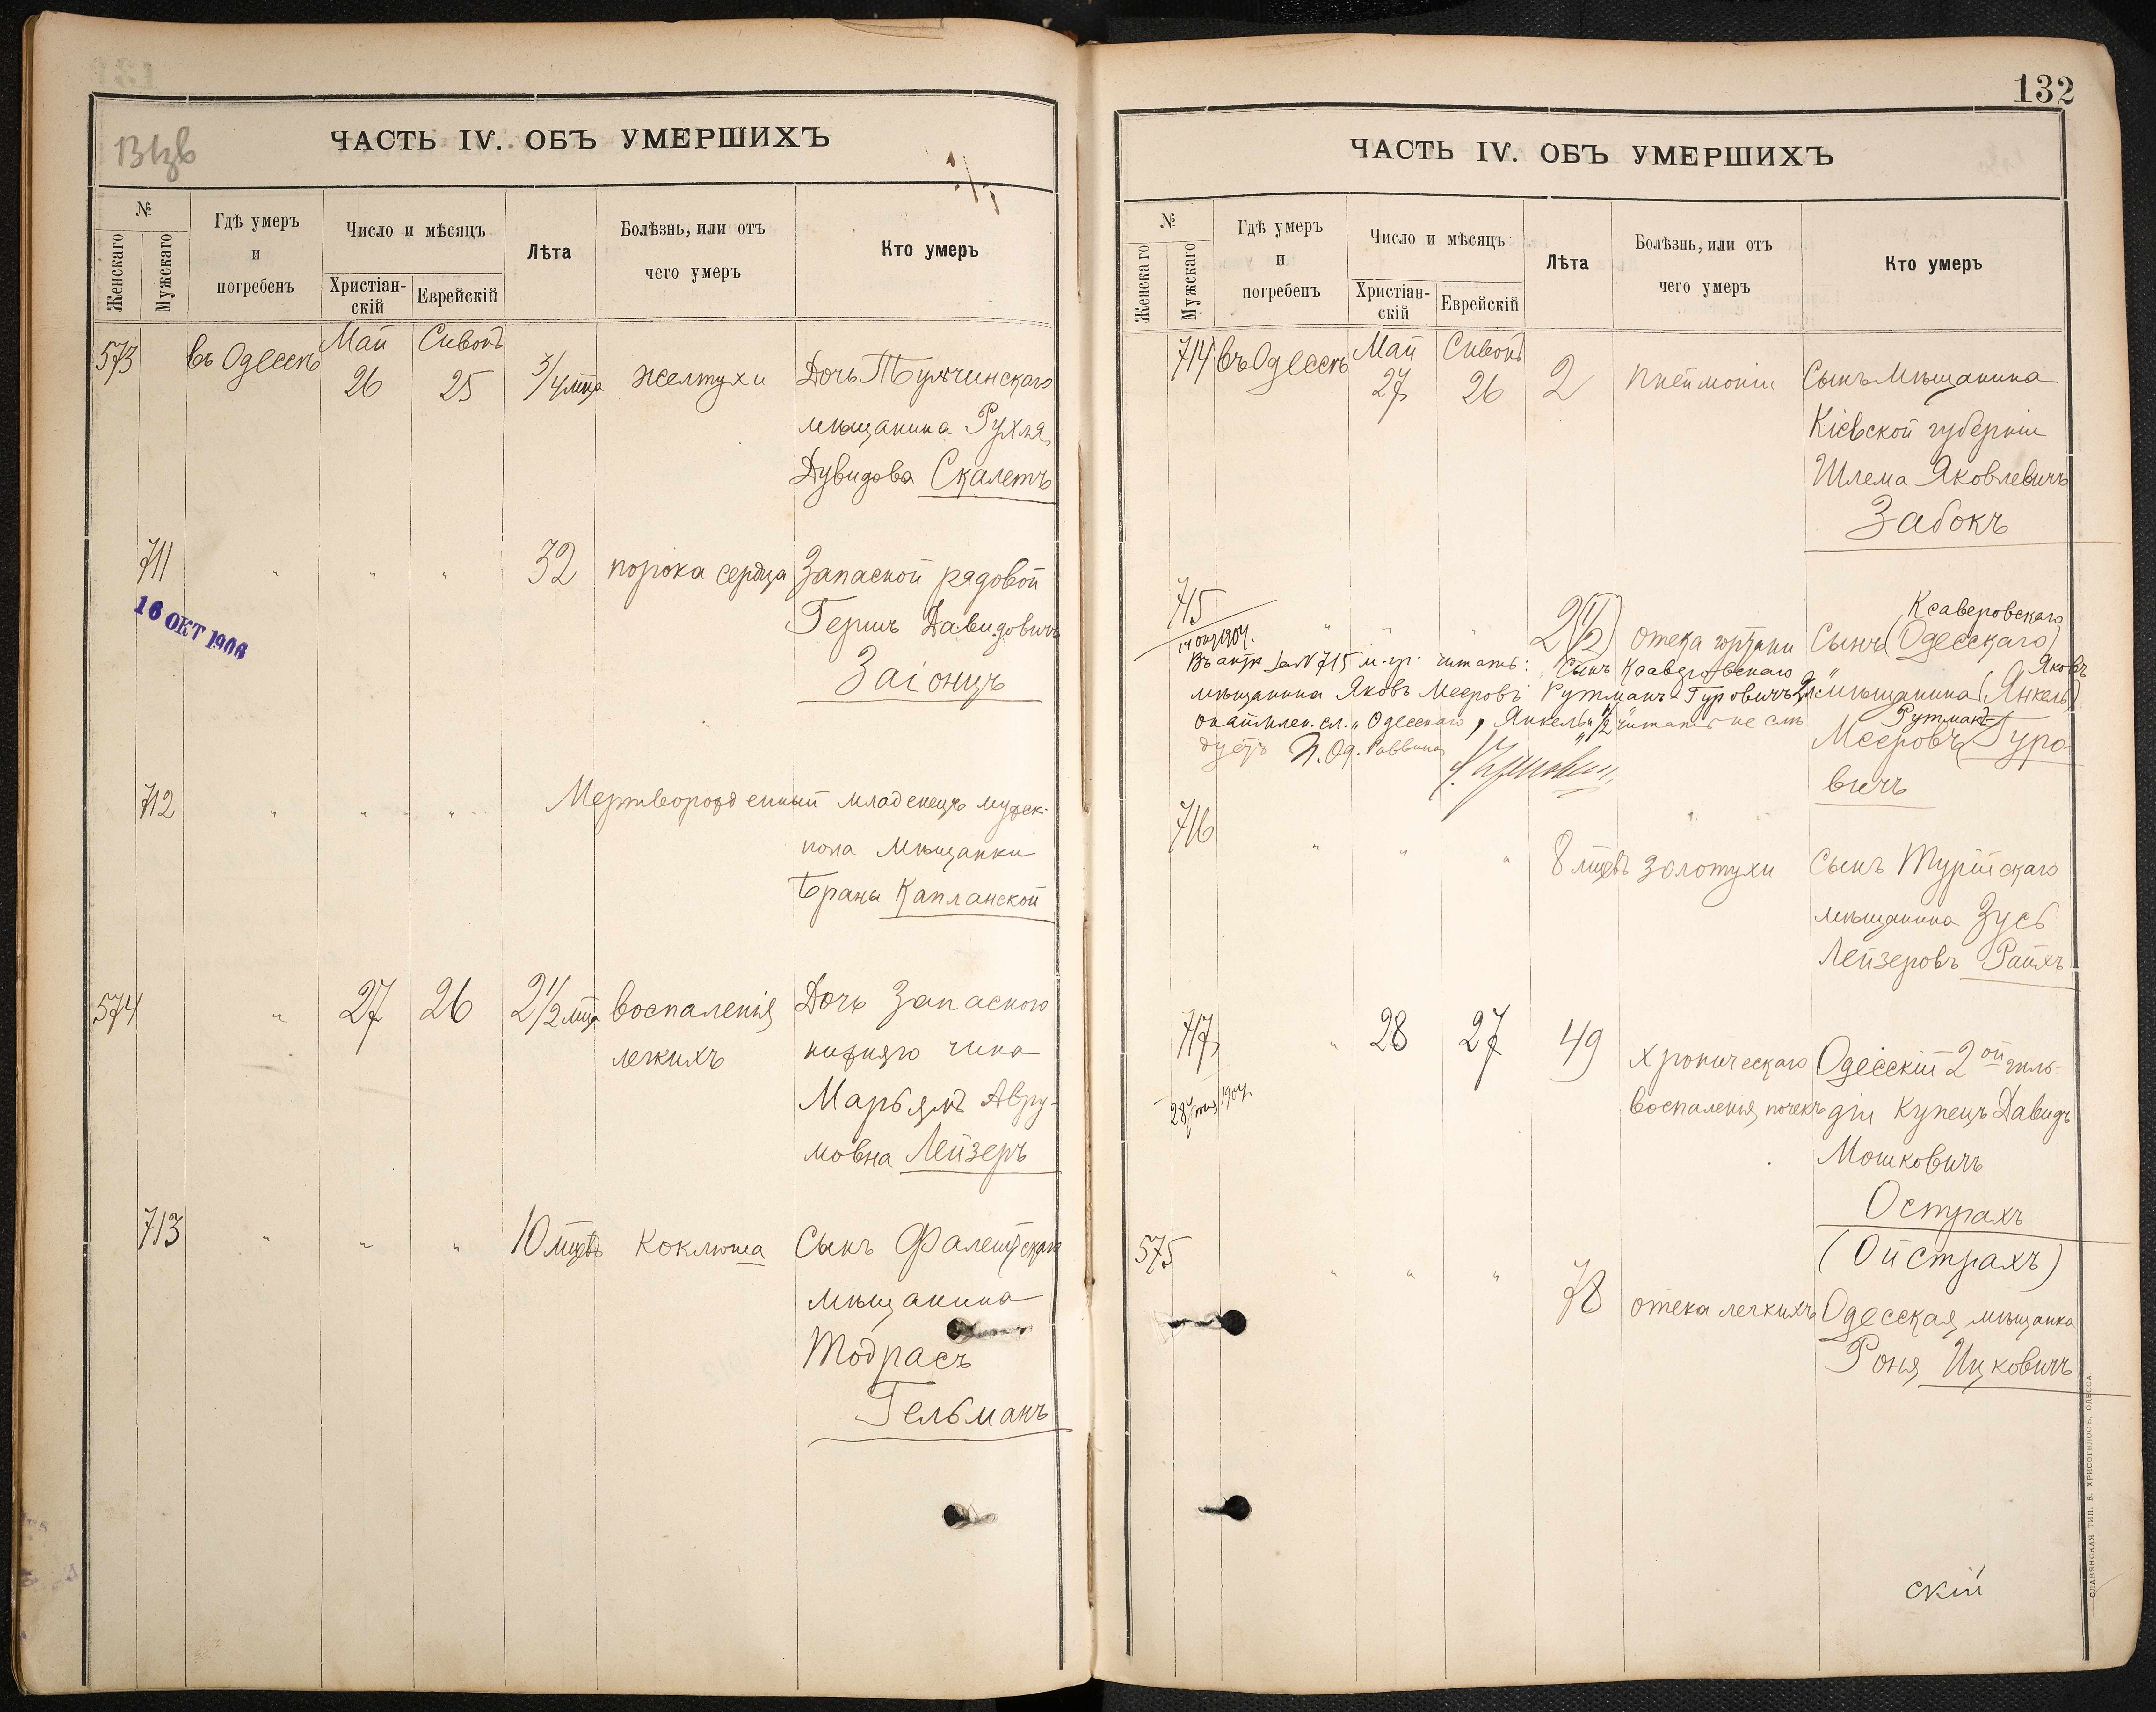 ЧАСТЬ IV. ОБЪ УМЕРШИХЪ
№
Женскаго
Мужскаго
Гдѣ умеръ
и
погребенъ
Число и мѣсяцъ
Христіан-
скій
Еврейскій
Лѣта
Болѣзнь, или отъ
чего умеръ
Кто умеръ
573 въ Одессѣ Май 26 Сивонъ 25 3/4 мца желтухи Дочь Тульчинскаго
мѣщанина Рухля
Дувидова Скалетъ
711 " " " 32 порока сердца Запасной рядовой
16 ОКТ 1906
Гершъ Давидовичъ
Заіонцъ
712 " " " Мертворожденный младенецъ мужск.
пола мѣщанки
Браны Капланской
574 " 27 26 2 1/2 мца воспаленія Дочь Запаснаго
легкихъ нижняго чина
Марьямъ Авру-
мовна Лейзеръ
713 " " " 10 мцевъ коклюша Сынъ Фалештскаго
мѣщанина
Тодрасъ
Гельманъ
132
ЧАСТЬ IV. ОБЪ УМЕРШИХЪ
№
Женскаго
Мужскаго
Гдѣ умеръ
и
погребенъ
Число и мѣсяцъ
Христіан-
скій
Еврейскій
Лѣта
Болѣзнь, или отъ
чего умеръ
Кто умеръ
714 въ Одессѣ Май 27 Сивонъ 26 2 пнеймоніи Сынъ мѣщанина
Кіевской губерніи
Шлема Яковлевичъ
Забокъ
Ксаверовскаго
715 " " " 2(1/2) отека гортани Сынъ (Одесскаго)
Яковъ
мѣщанина (Янкель)
Рутманъ-
Мееровъ Гуро-
вичъ
1907.
Въ актѣ за № 715 м. гр. читать: Сынъ Ксаверовскаго
мѣщанина Яковъ Мееровъ Рутманъ-Гуровичъ 2 л.
сл. "Одесскаго", "Янкель" "1/2" читать не слѣ
дуетъ И. Од. Раввина
716 " " " 8 мцевъ золотухи Сынъ Турійскаго
мѣщанина Зусь
Лейзеровъ Райхъ
717 " 28 27 49 хроническаго Одесскій 2ой гиль-
1907.
воспаленія почекъ діи купецъ Давидъ
Мошковичъ
Острахъ
(Ойстрахъ)
575 " " " 78 отека легкихъ Одесская мѣщанка
Роня Ицковичъ
скій
СЛАВЯНСКАЯ ТИП. Е. ХРИСОГЕЛОСЪ, ОДЕССА.